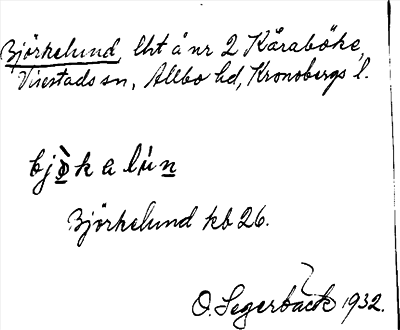 Björkelund, lht å nr 2 Kåraböke,
Virestads sn, Allbo hd, Kronobergs l.
bjò̱kalún̲
Björkelund kb 26.
O. Segerbäck 1932.